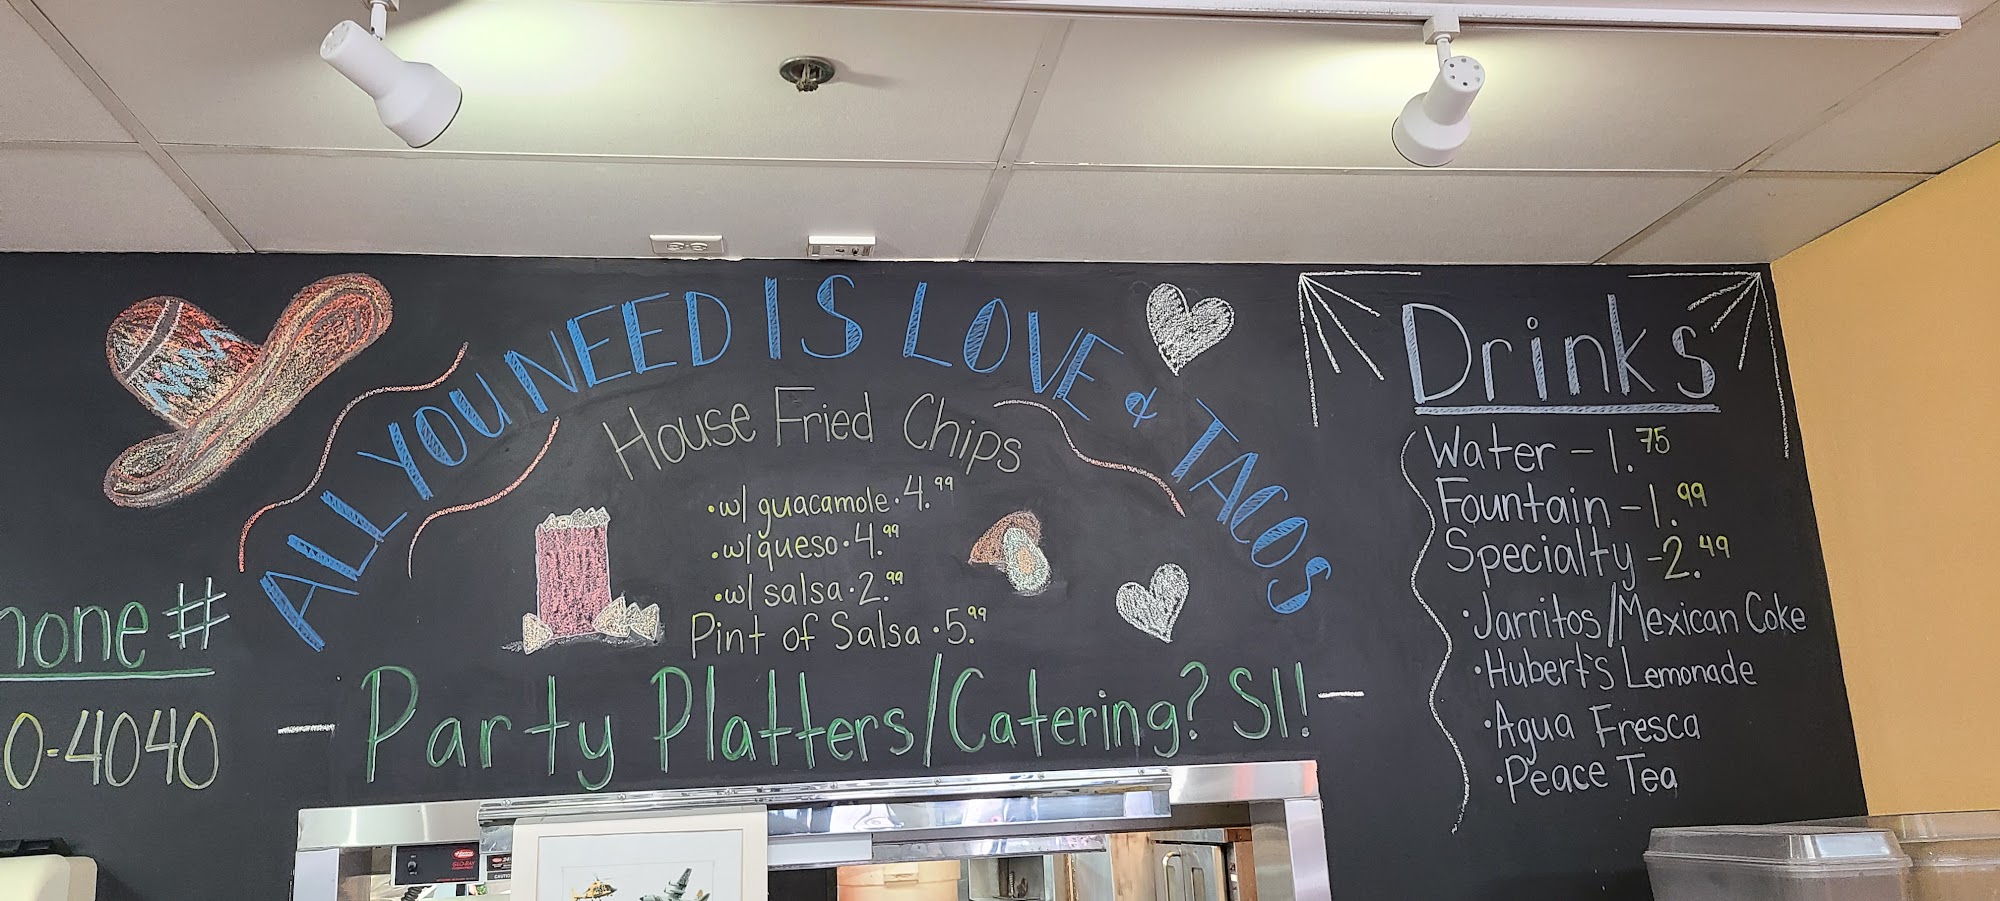 ALL YOU NEED IS LOVE & TACOS
House Fried Chips
•w/ guacamole•4.99
•w/queso•4.99
•w/ salsa•2.99
Pint of Salsa•5.99
-Party Platters/Catering? SI!-
hone #
0-4040
Drinks
Water - 1.75
Fountain - 1.99
Specialty - 2.49
•Jarritos/Mexican Coke
•Hubert's Lemonade
•Agua Fresca
•Peace Tea
GLO-RAY
CAUTION